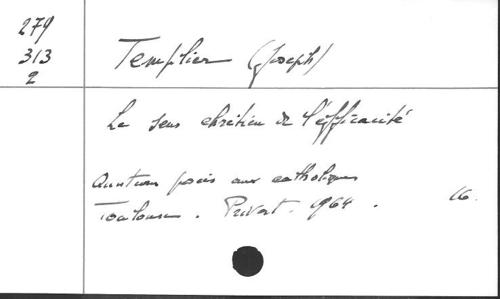 279
313
2
Templier (Joseph)
Le sens chrétien de l'efficacité
Questions posées aux catholiques
Toulouse. Privat. 1964. 16.